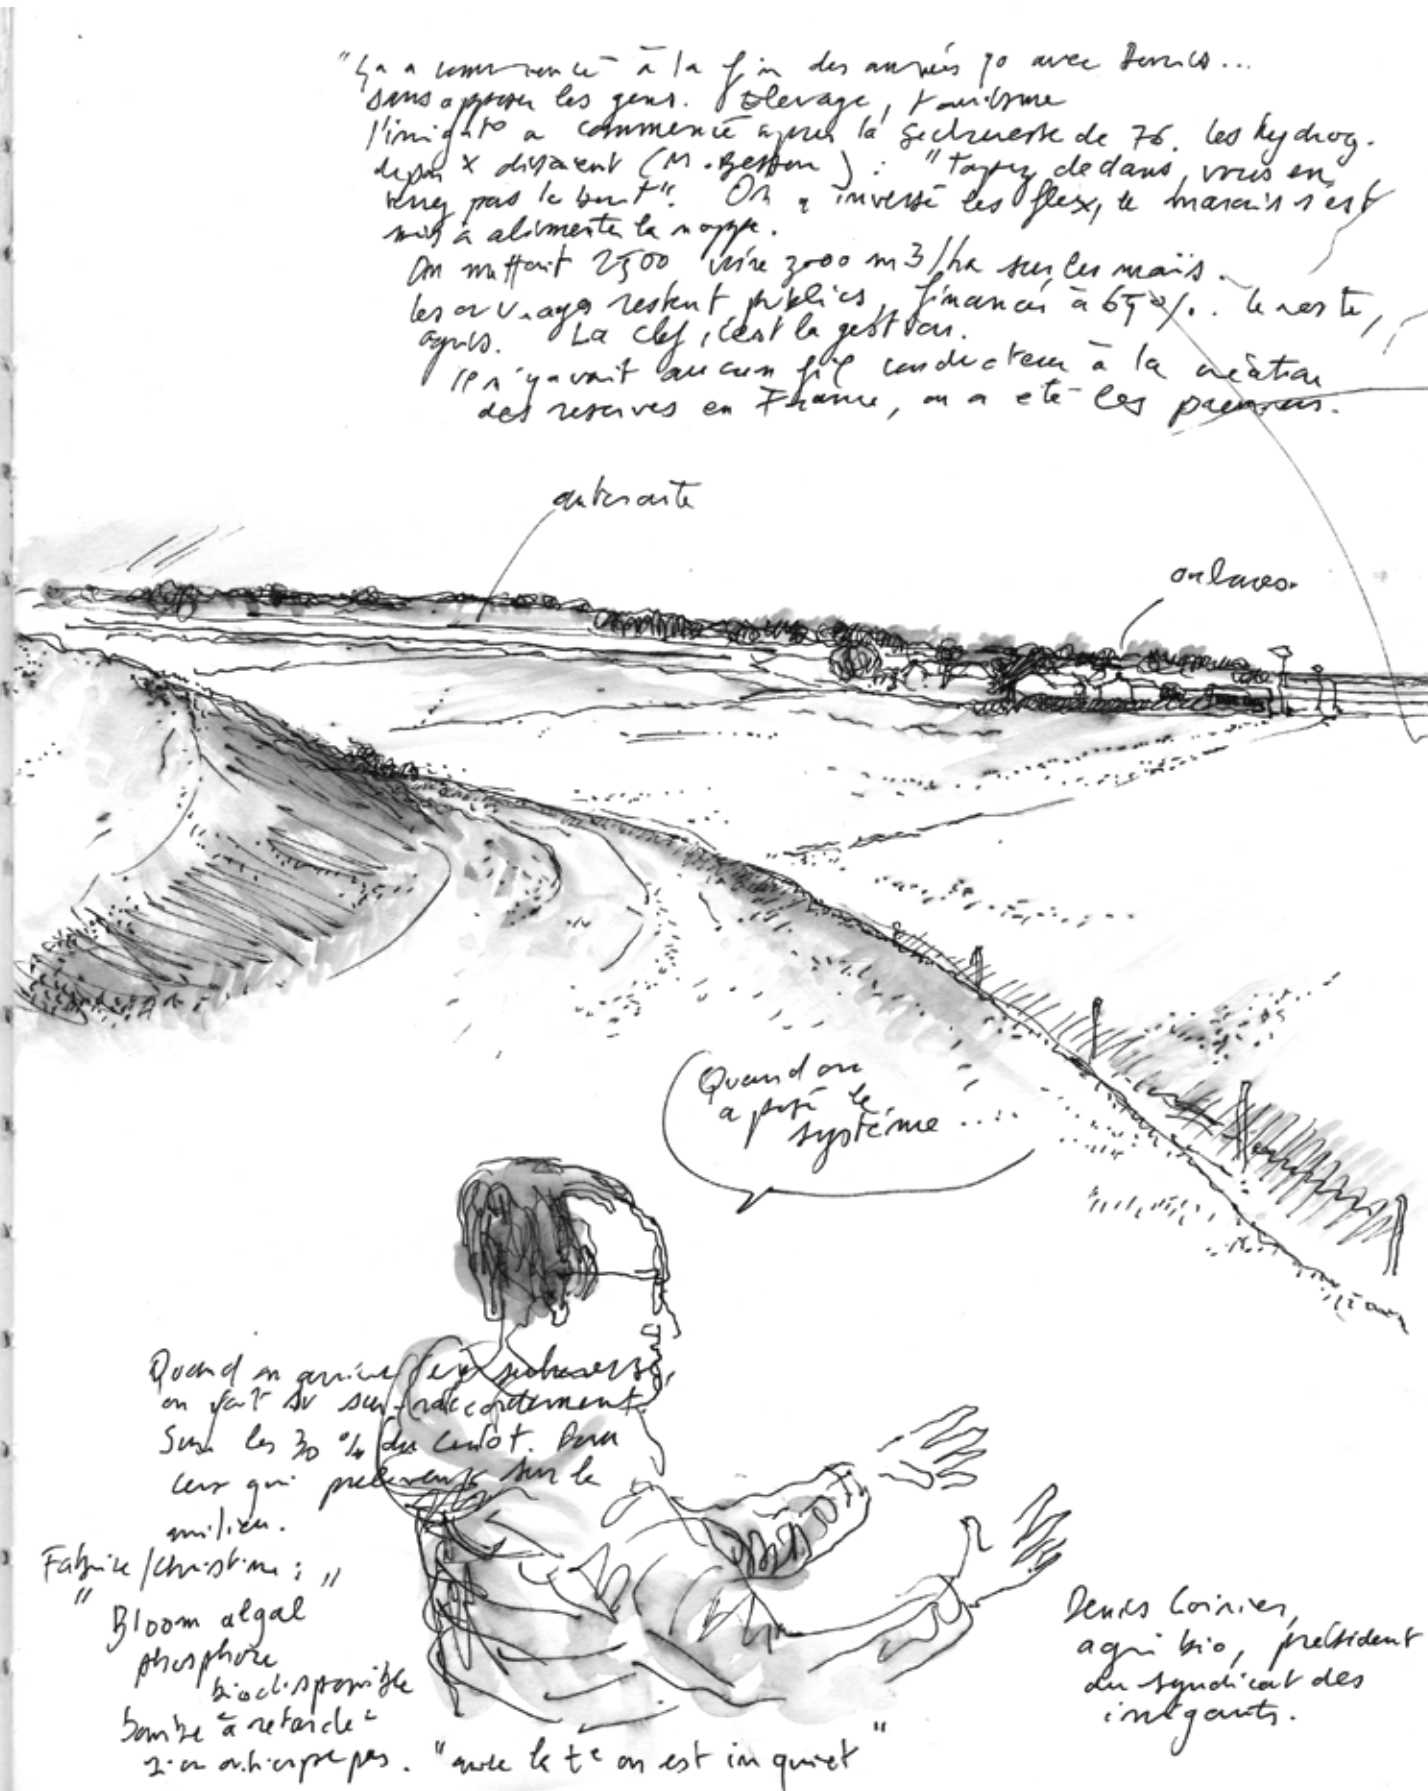 "ça a commencé à la fin des années 90 avec Denis...
sans opposer les gens. Elevage, tourisme
l'irrigat° a commencé après la sécheresse de 76. les hydrog.
disaient (M. Besson) : "Tapez dedans, vous en
verrez pas le bout". On a inversé les flux, le marais s'est
mis à alimenter la nappe.
On mettait 2500 voire 3000 m3/ha sur les maïs.
les ouvrages restent publics, financés à 65 %. le reste,
agris. La clef, c'est la gestion.
Il n'y avait aucun fil conducteur à la création
des réserves en France, on a été les premiers.
autoroute
Quand on
a posé le
système ....
Quand on arrive
on fait du sur-raccordement.
Sur les 30 % du Pour
ceux qui prélèvent sur le
milieu.
Fabrice/Christine : "
" Bloom algal
phosphore
biodisponible
bombe à retard
anticipe pas. "avec la t° on est inquiet"
Denis
agri bio, président
du syndicat des
irrigants.